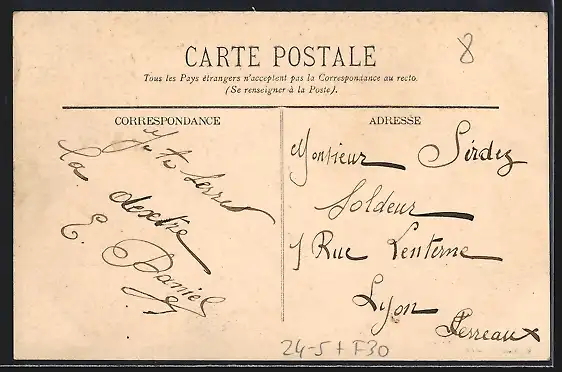 8
CARTE POSTALE
Tous les Pays étrangers n'acceptent pas la Correspondance au recto.
(Se renseigner à la Poste).
CORRESPONDANCE
Je te serre
la dextre
E. Daniel
ADRESSE
Monsieur Serdez
Soldeur
1 Rue Lenterne
Lyon
Terreaux
24-5+F30